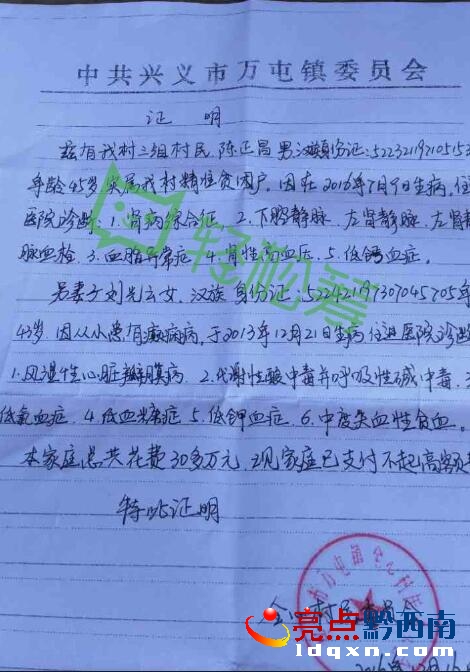 中共兴义市万屯镇委员会
证 明
兹有我村三组村民陈正昌 男 汉族 身份证:5223219710515
年龄45岁 实属我村精准贫困户。因在2016年7月9日生病,住
医院诊断:1.肾病综合征 2.下腔静脉 左肾静脉 左肾静
脉血栓 3.血脂异常症 4.肾性高血压 5.低钙血症。
另妻子刘光云女、汉族 身份证:522421197307045705 年
43岁 因从小患有癫痫病,于2013年12月21日生病住进医院诊断
1.风湿性心脏瓣膜病 2.代谢性酸中毒并呼吸性碱中毒 3
低氧血症 4.低血糖症 5.低钾血症 6.中度失血性贫血。
本家庭总共花费30多万元,现家庭已支付不起高额
特此证明
轻松筹
村民委员会
亮点黔西南
ldqxn.com